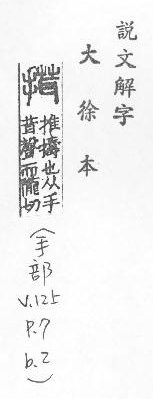 説文解字
大徐本
搑
推擣也从手
茸聲而隴切
(手部
V.12上
P.7
b.2)